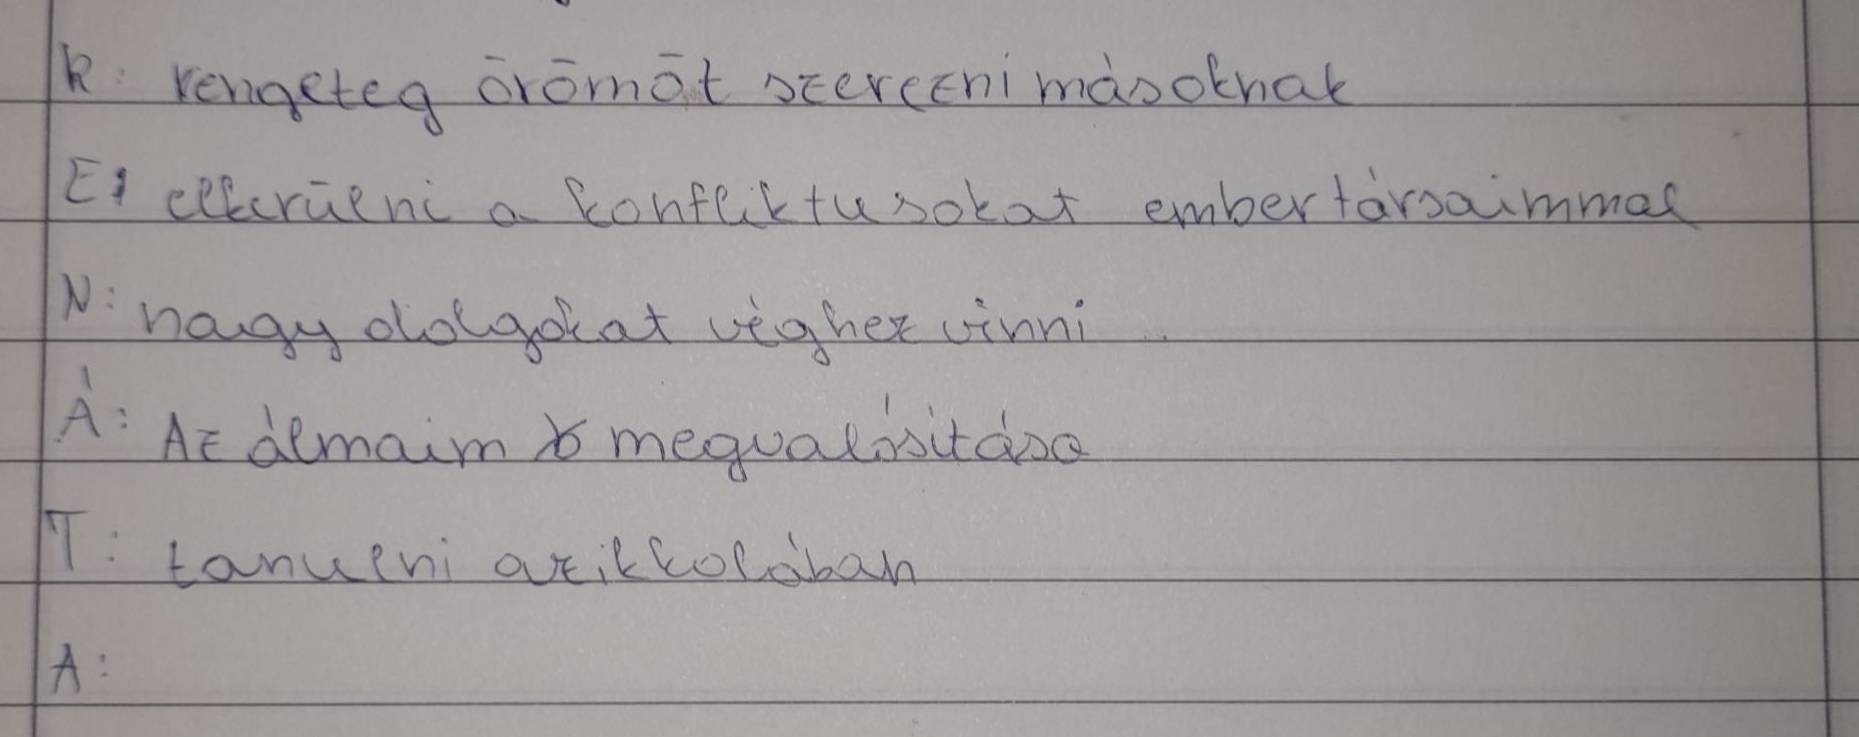 R: rengeteg örömöt szerezni másoknak
E: elkerülni a konfliktusokat embertársaimmal
N: nagy dolgokat véghez vinni
Á: Az álmaim megvalósitása
T: tanulni az ikkolában
A: